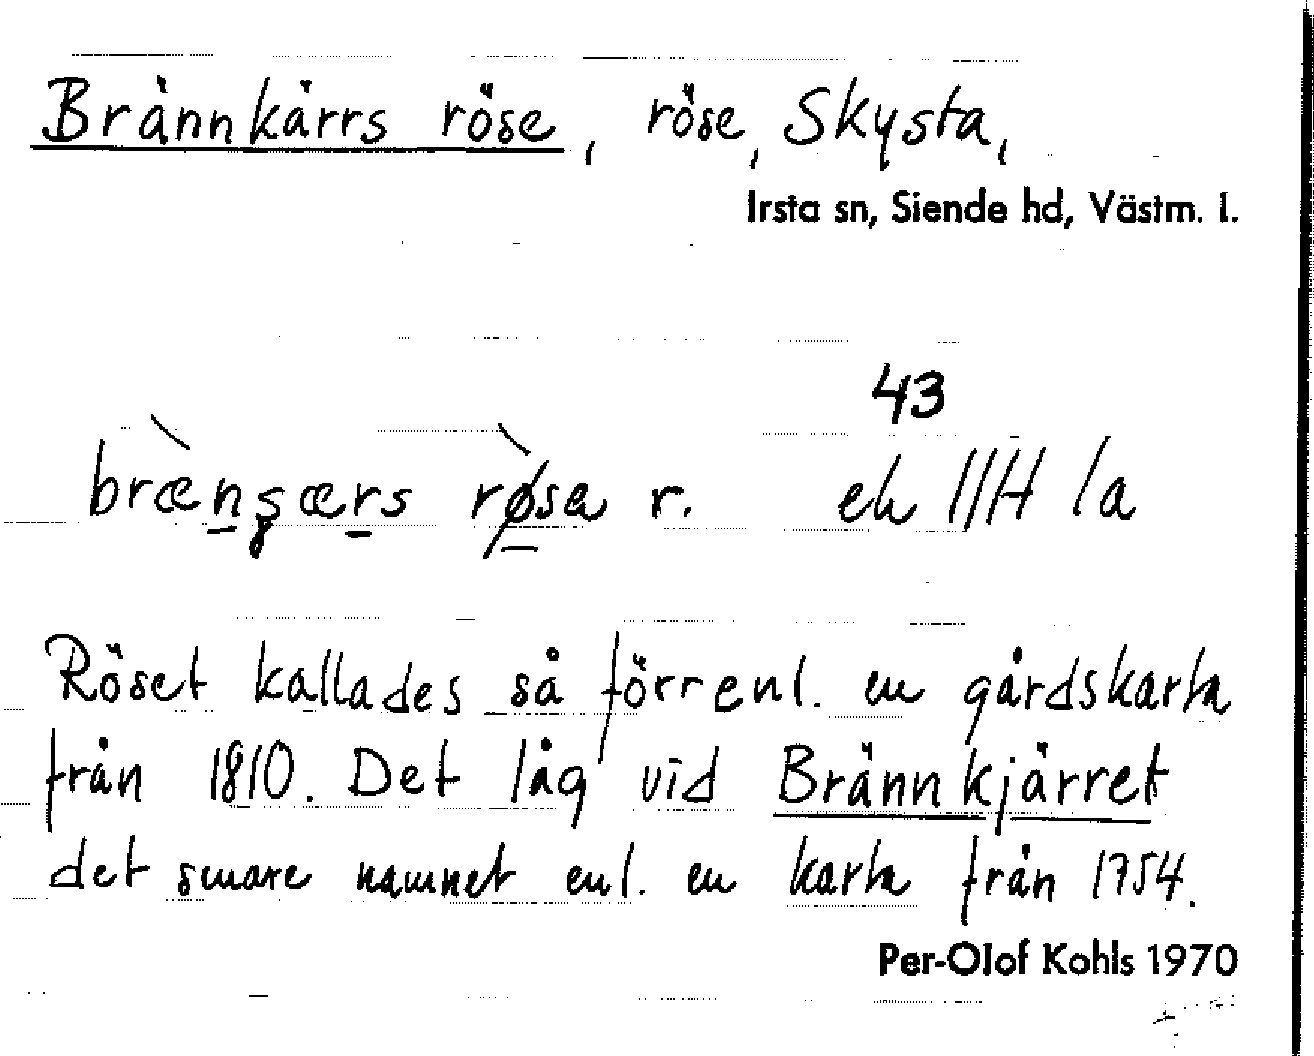 Brännkärrs röse, röse, Skysta,
Irsta sn, Siende hd, Västm. l.
43
r. ek IIH 1a
Röset kallades så förr enl. en gårdskarta
från 1810. Det låg vid Brännkjärret
det senare namnet enl. en karta från 1754.
Per-Olof Kohls 1970